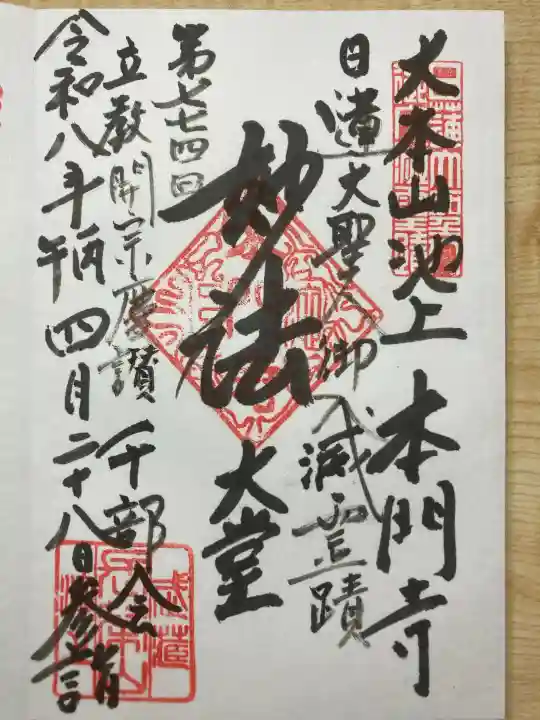 大本山池上 本門寺
日蓮大聖人御入滅霊蹟
妙法
大堂
第七七四回
立教開宗慶讃 千部会
令和八年丙午 四月二十八日参詣